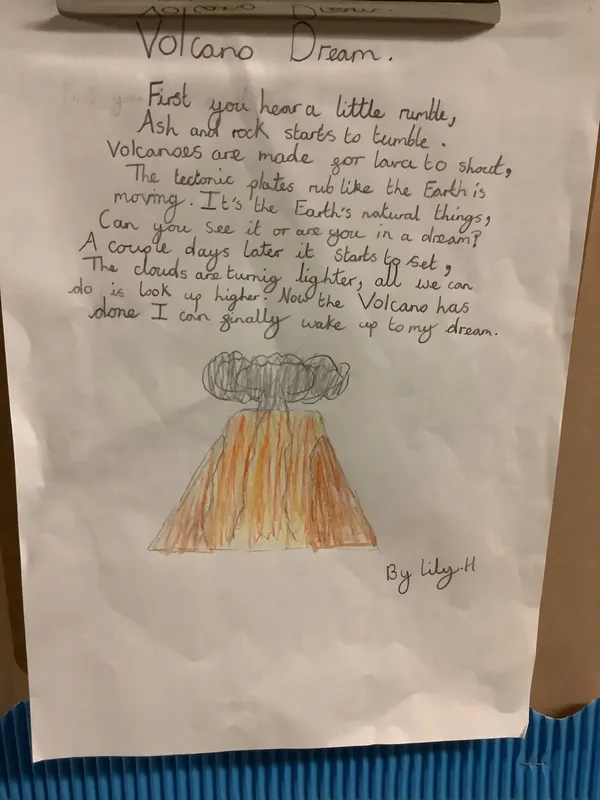 Volcano Dream.
Volcano Dream.
First you hear a little rumble,
Ash and rock starts to tumble.
Volcanoes are made for lava to shout,
The tectonic plates rub like the Earth is
moving. It's the Earth's natural things,
Can you see it or are you in a dream?
A couple days later it starts to set,
The clouds are turnig lighter, all we can
do is look up higher. Now the Volcano has
done I can finally wake up to my dream.
By Lily.H